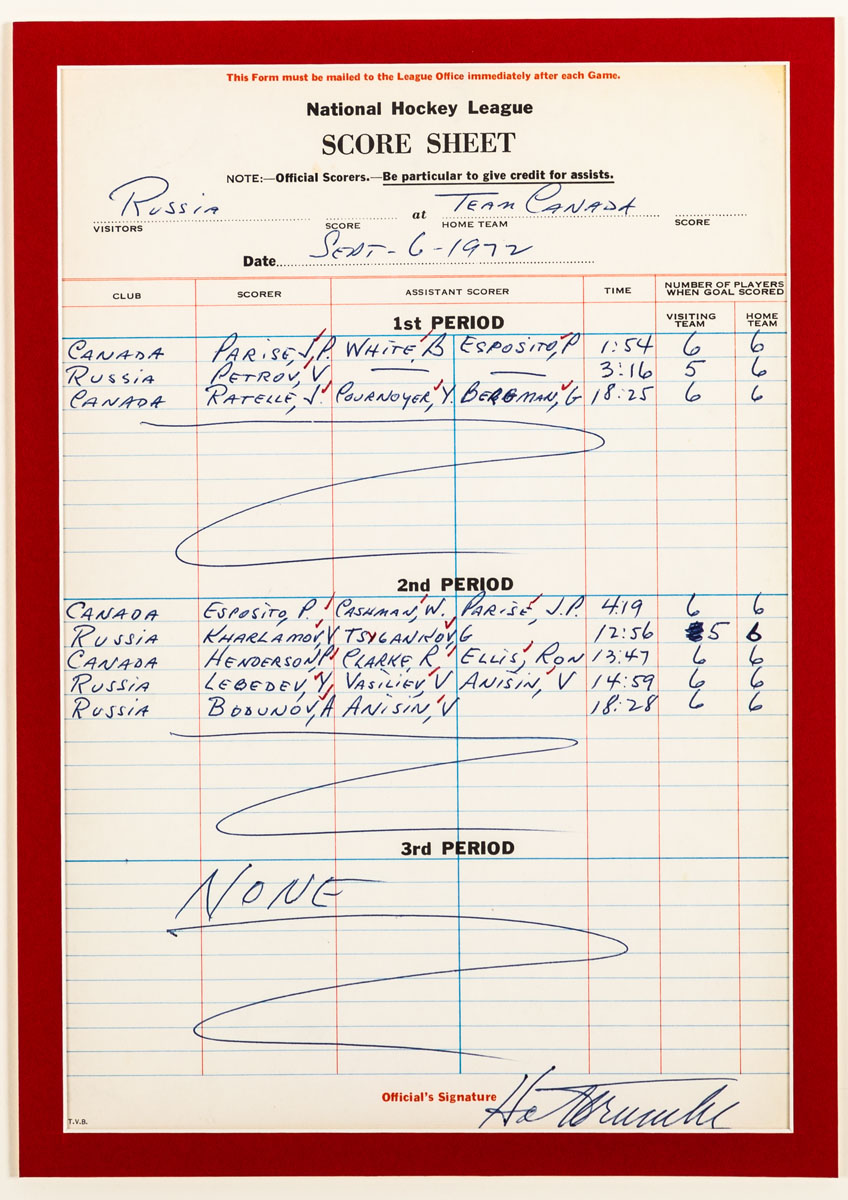 This Form must be mailed to the League Office immediately after each Game.
National Hockey League
SCORE SHEET
NOTE:—Official Scorers.—Be particular to give credit for assists.
RUSSIA at TEAM CANADA
VISITORS SCORE HOME TEAM SCORE
Date SEPT-6-1972
CLUB SCORER ASSISTANT SCORER TIME NUMBER OF PLAYERS WHEN GOAL SCORED
1st PERIOD VISITING TEAM HOME TEAM
CANADA PARISE, J.P. WHITE, B ESPOSITO, P 1:54 6 6
RUSSIA PETROV, V — — 3:16 5 6
CANADA RATELLE, J. COURNOYER, Y. BERGMAN, G 18:25 6 6
2nd PERIOD
CANADA ESPOSITO, P. CASHMAN, W. PARISE, J.P. 4:19 6 6
RUSSIA KHARLAMOV, V TSYGANKOV, G 12:56 5 6
CANADA HENDERSON, P CLARKE, R ELLIS, RON 13:47 6 6
RUSSIA LEBEDEV, Y, VASILIEV, V ANISIN, V 14:59 6 6
RUSSIA BODUNOV, A ANISIN, V 18:28 6 6
3rd PERIOD
NONE
Official's Signature
T.V.B.